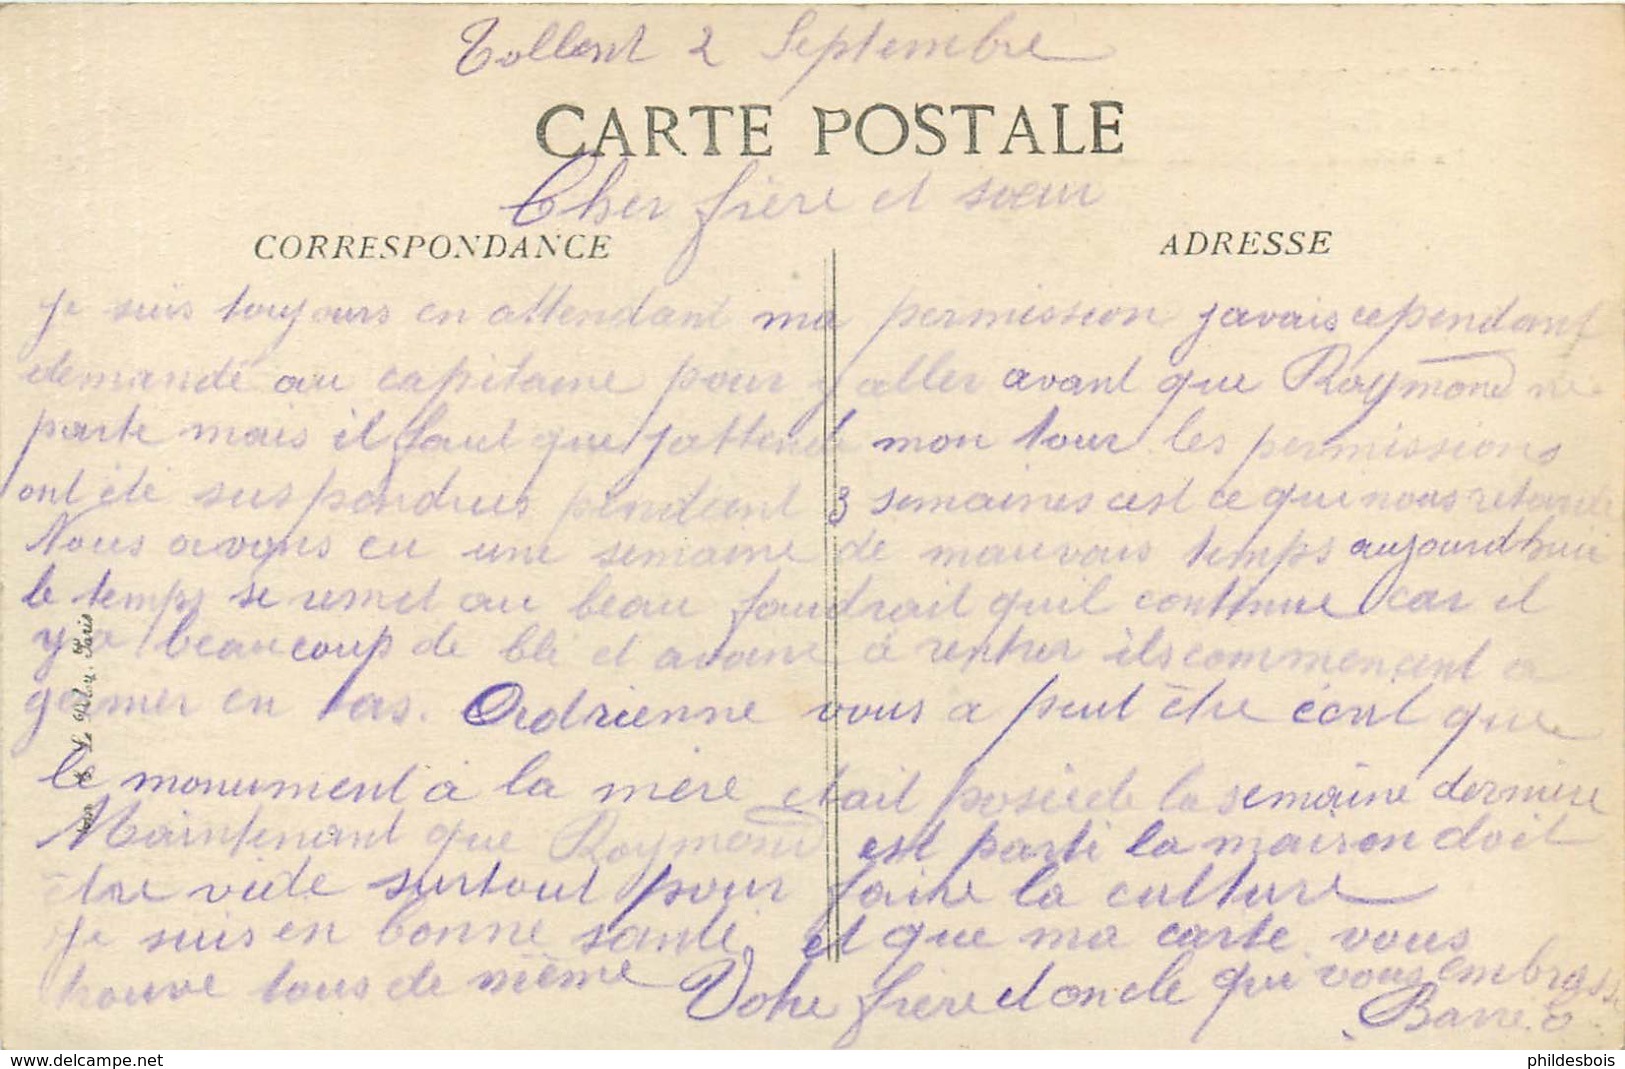 Tollent 2 Septembre
CARTE POSTALE
Cher frère et sœur
CORRESPONDANCE
ADRESSE
Je suis toujours en attendant ma permission javais cependant
demandé au capitaine pour y aller avant que Raymond ne
parte mais il faut que jattende mon tour les permissions
ont été suspendues pendant 3 semaines cest ce qui nous retarde
Nous avons eu une semaine de mauvais temps aujourdhui
le temps se remet au beau faudrait quil continue car il
y a beaucoup de blé et avoine à rentrer ils commencent a
germer en tas. Adrienne vous a peut être écrit que
le monument à la mère etait posé de la semaine dernière
Maintenant que Raymond est parti la maison doit
être vide surtout pour faire la culture
Je suis en bonne santé, et que ma carte vous
trouve tous de même Votre frère et oncle qui vous embrasse
Barre
Paris
www.delcampe.net
phildesbois